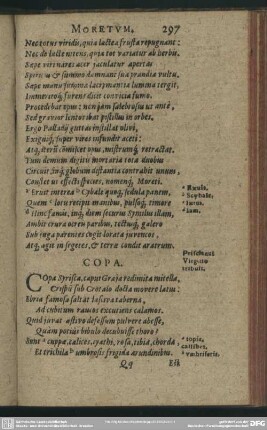 MORETVM. 297
Nec totus viridis, quia lactea frusta repugnant:
Nec de lacte nitens, quia tot variatur ab herbis.
Sæpe viri nares acer iaculatur apertas
Spiritus & simo damnat sua prandia vultu,
Sæpe manu summa lacrymantia lumina tergit,
Immeritoq; furens dicit convicia fumo.
Procedebat opus: nec iam salebrosus ut ante,
Sed gravior lentos ibat pistillus in orbes,
Ergo Palladii guttas instillat olivi,
Exiguiq; super vires infundit aceti:
Atq; iterum commiscet opus, mistumq; retractat,
Tum demum digitis mortaria tota duobus
Circuit inq; globum distantia contrahit unum,
Constet ut effecti species, nomenq; Moreti.
Eruit interea Cybale quoq; sedula panem,
Quem locuretipit manibus, pulsoq; timore
Hinc famis, inq; diem securus Symilus illam,
Ambit crura ocreis paribus, tectusq; galero
Sub iuga parentes cogit lorata iuvencos,
Atq; agit in segetes, & terræ condit aratrum.
Scybale.
lætus.
iam.
COPA.
COpa Syrisca, caput Graja redimita mitella,
Crispũ sub Crotalo docta movere latus:
Ebria famosa saltat lasciva taberna,
Ad cubitum raucos excutiens calamos.
Quid juvat æstivo defessum pulvere abesse,
Quàm potiùs bibulo decubuisse thoro?
Sunt cuppæ, calices, cyathi, rosa, tibia, chorda,
Et trichila umbrosis frigida arundinibus.
topia,
Qq
Est